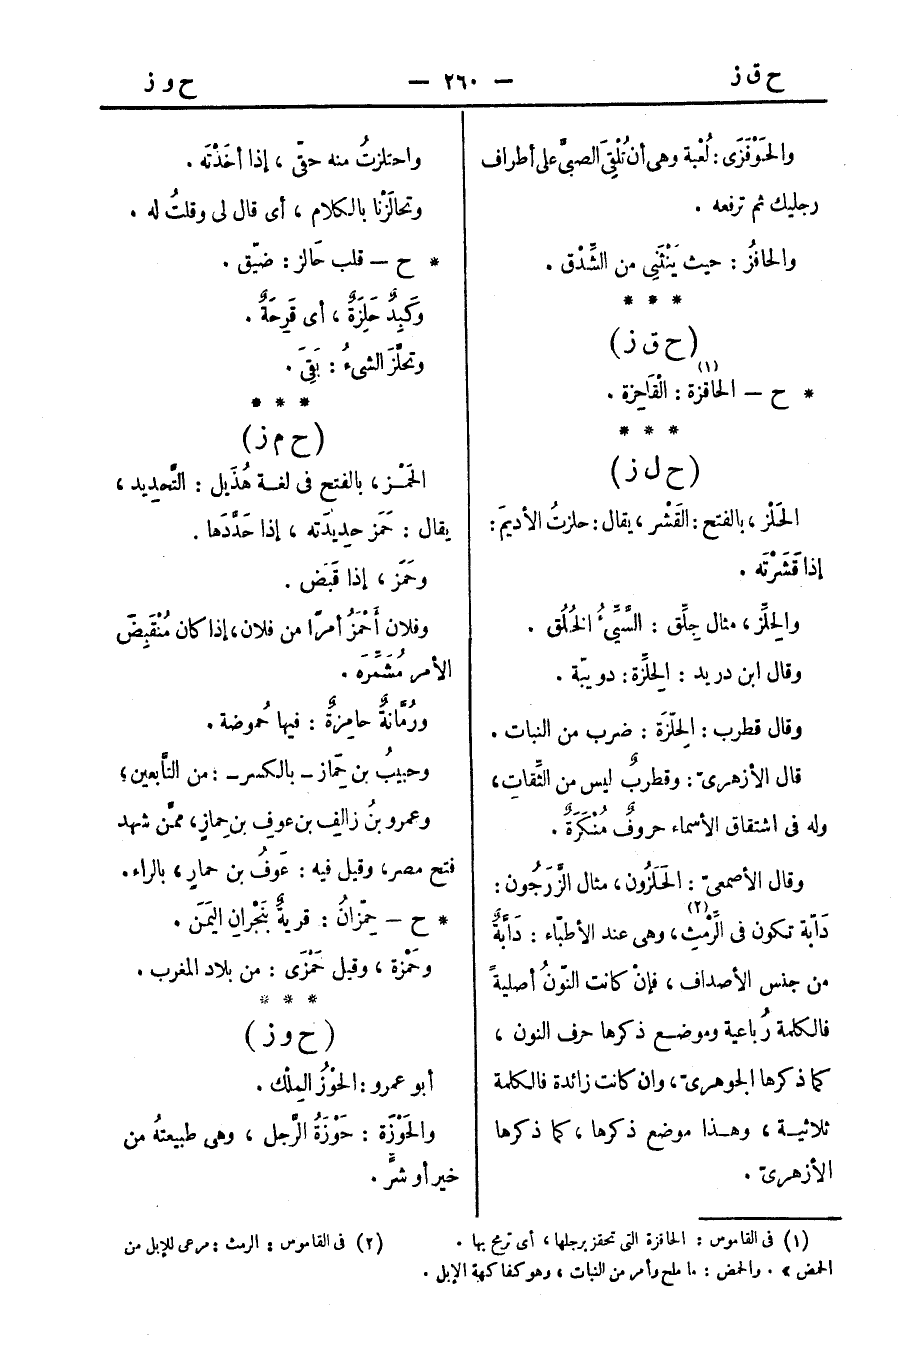 ح ق ز — ٢٦٠ — ح و ز
والحَوْفَزَى: لُعْبة وهى أن تُلْقِىَ الصبىَّ على أطراف
رجليك ثم ترفعه .
والحافزُ : حيث يَنْثَنِى من الشِّدْق .
* * *
(ح ق ز)
* ح — الحاقزة (١) : الْقَاحِزة .
* * *
(ح ل ز)
الحَلْز ، بالفتح : القَشْر ، يقال : حلزتُ الأديمَ :
إذا قَشَرْتَه .
والحِلِّز ، مثال جِلِّق : السَّيِّئُ الخُلُق .
وقال ابن دريد : الحِلِّزة : دويبّة .
وقال قطرب : الحِلّزَة : ضرب من النبات .
قال الأزهرىّ : وقطربٌ ليس من الثِّقاتِ،
وله فى اشتقاق الأسماء حروفٌ مُنْكَرَةٌ .
وقال الأصمعىّ : الحَلَزُون ، مثال الزَّرَجُون :
دَابّة تكون فى الرِّمْثِ (٢)، وهى عند الأطبّاء : دَابَّةٌ
من جنس الأصداف ، فإنْ كانت النّونُ أصليةً
فالكلمة رُباعية وموضع ذكرها حرف النون ،
كما ذكرها الجوهرىّ ، وان كانت زائدة فالكلمة
ثلاثية ، وهذا موضع ذكرها ، كما ذكرها
الأزهرىّ .
واحتلزتُ منه حقّى ، إذا أخَذْتَه .
وتحالَزْنا بالكلام ، أى قال لى وقلتُ له .
* ح — قلب حَالز : ضيّق .
وكَبِدٌ حَلِزَةٌ ، أى قَرِحَةٌ .
وتحلَّزَ الشىءُ : بَقِىَ .
* * *
(ح م ز)
الحَمْز ، بالفتح فى لغة هُذَيل : التَّحديد ،
يقال : حَمَز حديدَته ، إذا حَدَّدَها .
وحَمَز ، إذا قَبَض .
وفلان أَحْمَزُ أمرًا من فلان ، إذا كان مُنْقَبِضَ
الأمر مُشَمَّرَه .
ورُمَّانةٌ حامِزةٌ : فيها حُموضة .
وحبيبُ بن حِمَاز — بالكسر — : من التَّابعين ؛
وعمرو بنُ زالفِ بن عوفِ بن حِمازٍ ، ممّن شهد
فتح مصر ، وقيل فيه : عَوفُ بن حمارٍ ، بالراء .
* ح — حِمِّزانُ : قريةٌ بنَجْرانِ اليَمَن .
وحَمْزة ، وقيل حَمْزَى : من بلاد المغرب .
* * *
(ح و ز)
أبو عمرو : الحَوْزُ المِلْك .
والحَوْزَة : حَوْزَةُ الرَّجل ، وهى طبيعتهُ من
خير أو شرٍّ .
(١) فى القاموس : الحاقزة التى تحقز برجلها ، أى ترمح بها . (٢) فى القاموس : الرمث : مرعى للإبل من
الحمض » . والحمض : ما ملح وأمر من النبات ، وهو كفاكهة الإبل .